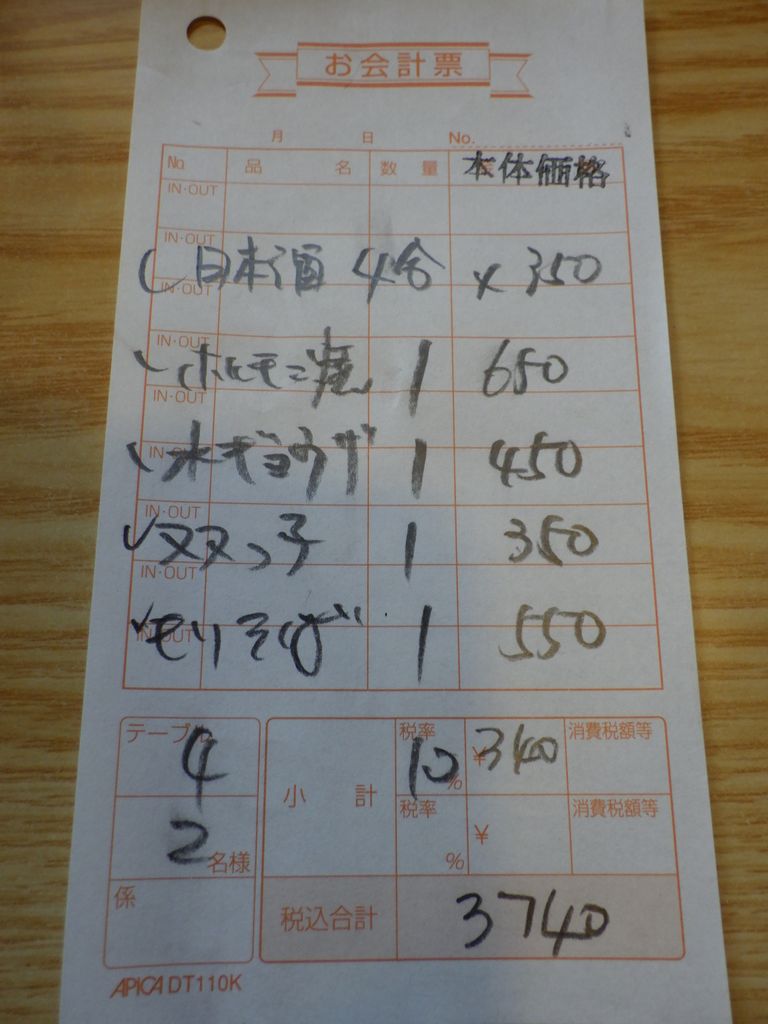 お会計票
月 日 No.
No. 品名 数量 本体価格
IN・OUT
IN・OUT
日本酒 4合 × 350
IN・OUT
IN・OUT
ホルモン焼 1 650
IN・OUT
IN・OUT
水ギョウザ 1 450
IN・OUT
双又っ子 1 350
IN・OUT
モリそば 1 550
IN・OUT
テーブル 4
2 名様
係
小計 税率 10 % ¥ 340 消費税額等
税率 % ¥ 消費税額等
税込合計 3740
APICA DT110K